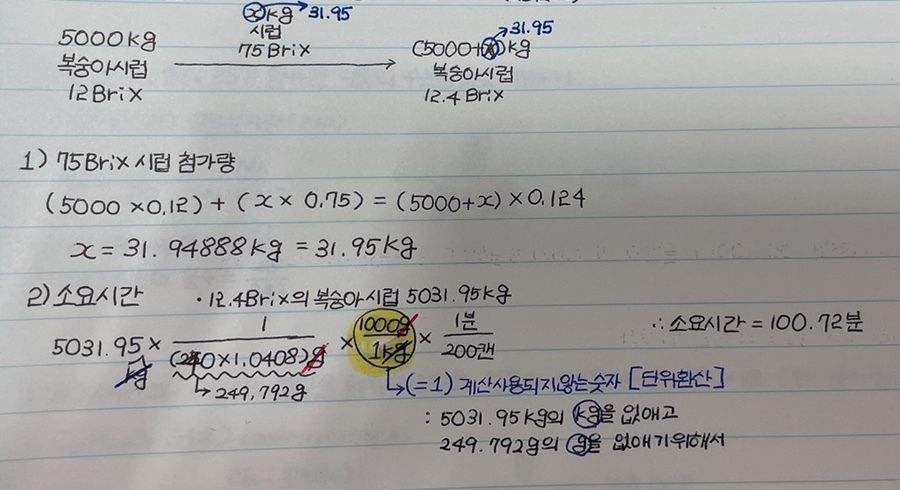 x kg → 31.95
시럽
75 Brix
5000kg
복숭아시럽
12 Brix
→ 31.95
(5000+x)kg
복숭아시럽
12.4 Brix
1) 75Brix 시럽 첨가량
(5000 × 0.12) + (x × 0.75) = (5000+x) × 0.124
x = 31.94888kg = 31.95kg
2) 소요시간 · 12.4Brix의 복숭아시럽 5031.95kg
5031.95 kg × 1 / (240×1.0408)g × 1000g / 1kg × 1분 / 200캔 ∴ 소요시간 = 100.72분
↳ 249.792g
↳ (=1) 계산사용되지않는숫자 [단위환산]
: 5031.95kg의 kg을 없애고
249.792g의 g을 없애기위해서